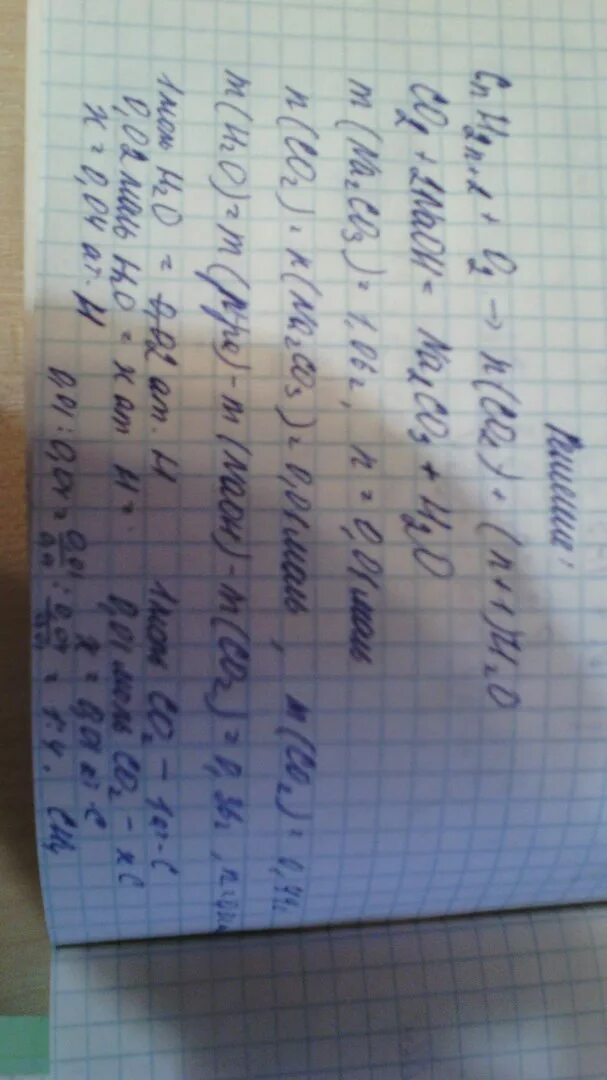 Решение:
CnH2n+2 + O2 → n(CO2) + (n+1)H2O
CO2 + 2NaOH = Na2CO3 + H2O
m(Na2CO3) = 1,06г, n = 0,01 моль
n(CO2) = n(Na2CO3) = 0,01 моль, m(CO2) = 0,44г
m(H2O) = m(пр) - m(NaOH) - m(CO2) = 0,36г,
1 моль H2O = 2 ат. H 1 моль CO2 - 1 ат. C
0,02 моль H2O = x ат H = 0,01 моль CO2 - x C
x = 0,04 ат. H x = 0,01 ат. C
0,01 : 0,04 = 0,01/0,01 : 0,04/0,01 = 1:4. CH4